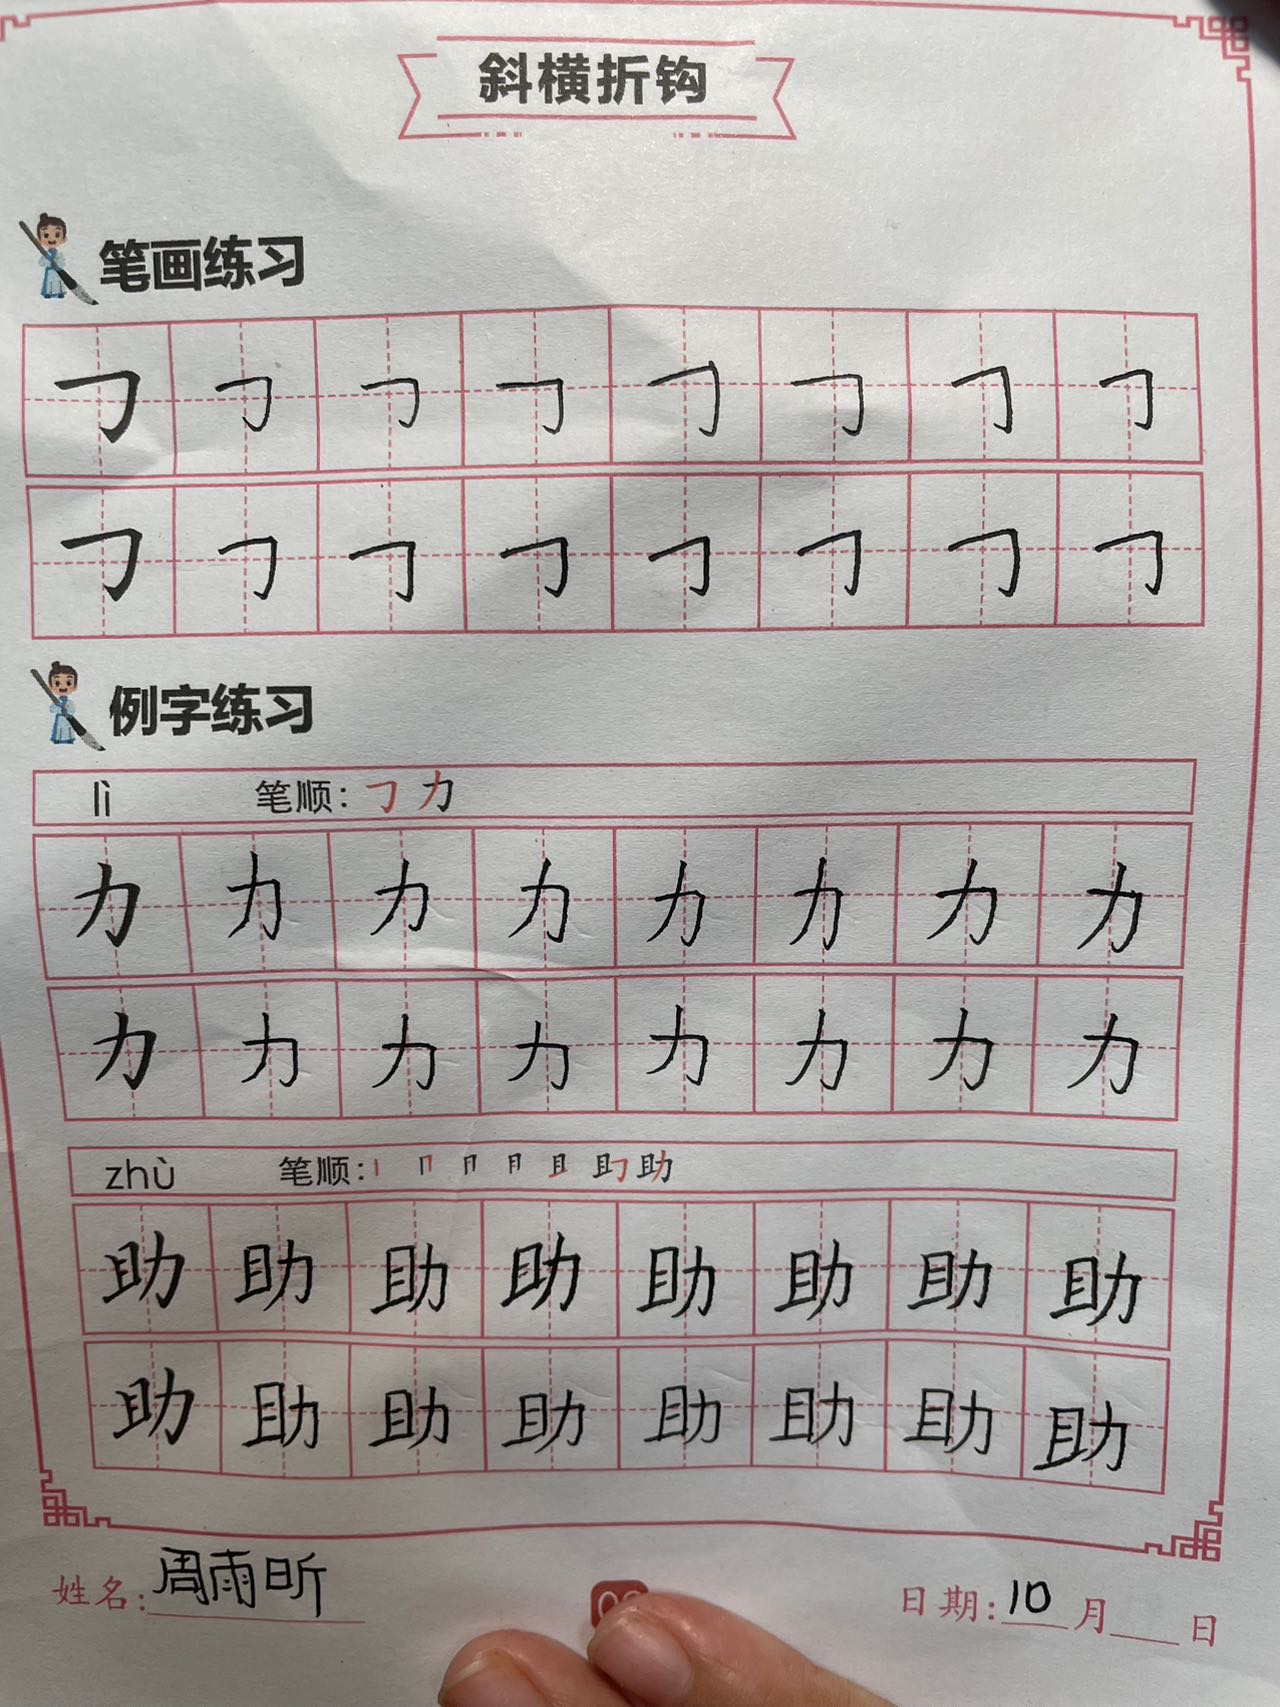 斜横折钩
笔画练习
㇆ ㇆ ㇆ ㇆ ㇆ ㇆ ㇆ ㇆
㇆ ㇆ ㇆ ㇆ ㇆ ㇆ ㇆ ㇆
例字练习
lì 笔顺: ㇆ 力
力 力 力 力 力 力 力 力
力 力 力 力 力 力 力 力
zhù 笔顺: 丨 冂 月 且 助 助
助 助 助 助 助 助 助 助
助 助 助 助 助 助 助 助
姓名: 周雨昕 日期: 10 月 日